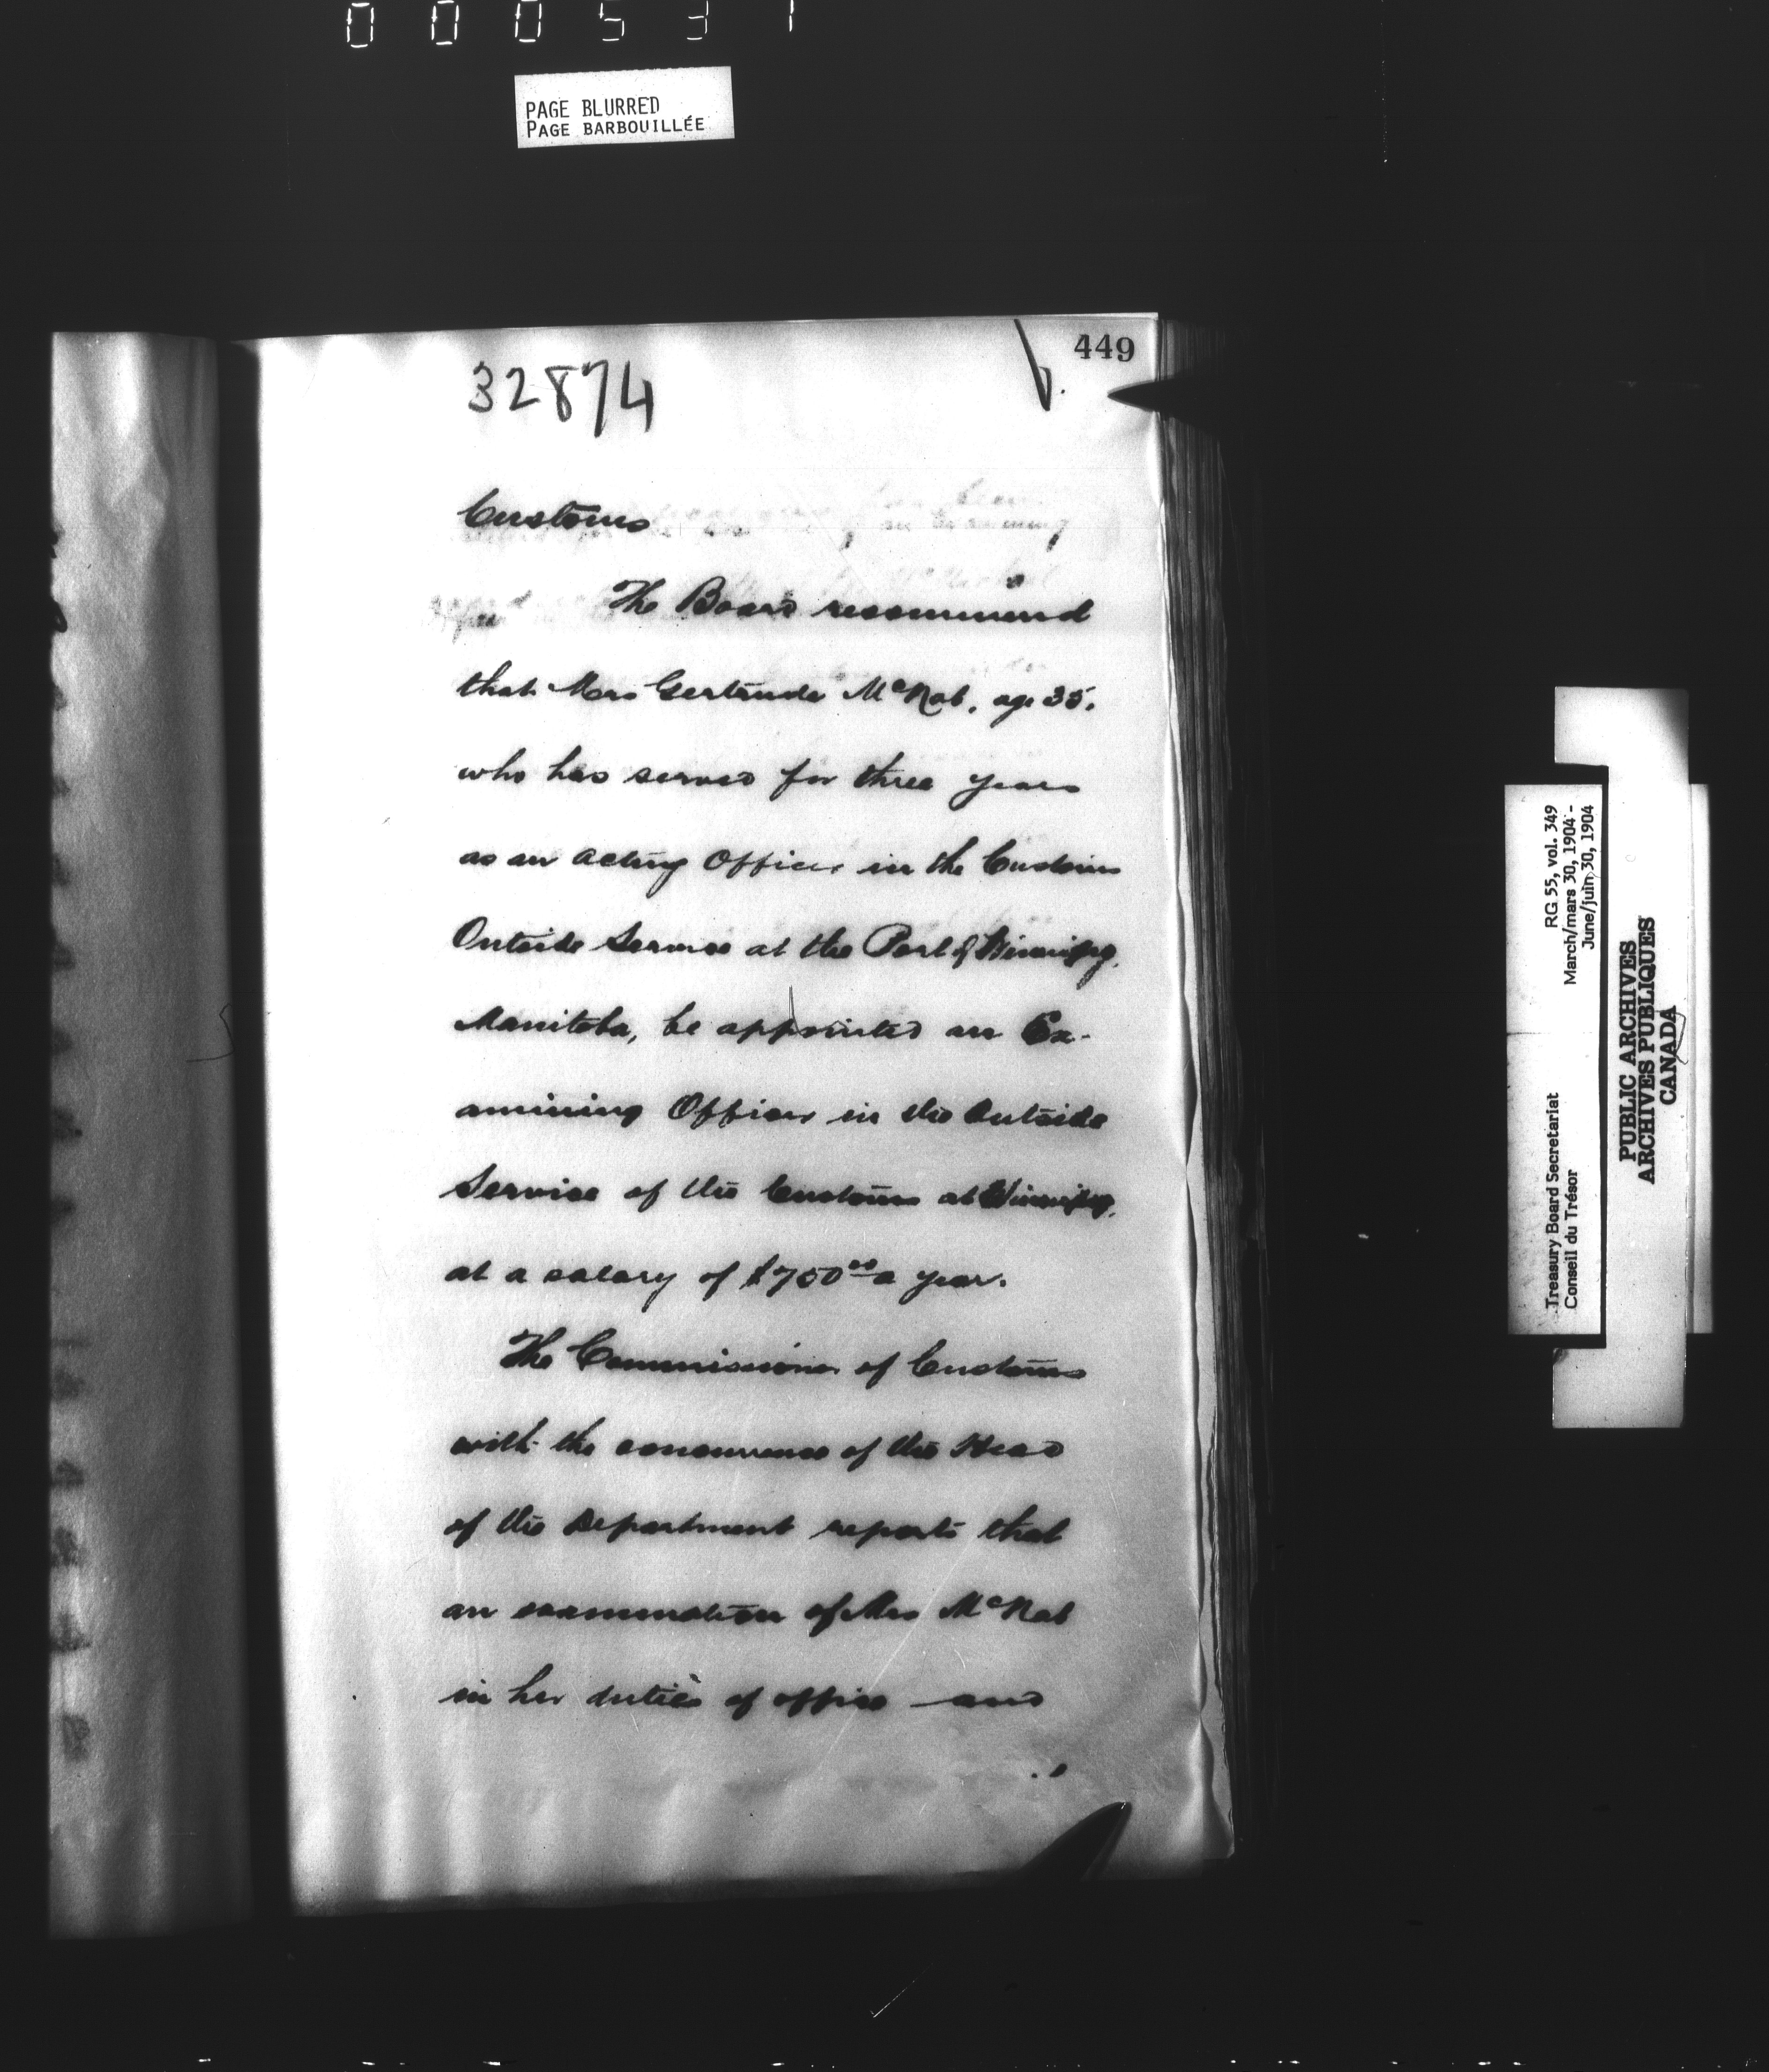 000531
PAGE BLURRED
PAGE BARBOUILLÉE
449
32874
Customs
The Board recommend
that Mrs Gertrude McNab, age 35,
who has served for three years
as an acting Officer in the Customs
Outside Service at the Port of Winnipeg,
Manitoba, be appointed an Ex-
amining Officer in the Outside
Service of the Customs at Winnipeg,
at a salary of $750.00 a year.
The Commissioner of Customs
with the concurrence of the Head
of the Department reports that
an examination of Mrs McNab
in her duties of office and
Treasury Board Secretariat RG 55, vol. 349
Conseil du Trésor March/mars 30, 1904 -
June/juin 30, 1904
PUBLIC ARCHIVES
ARCHIVES PUBLIQUES
CANADA